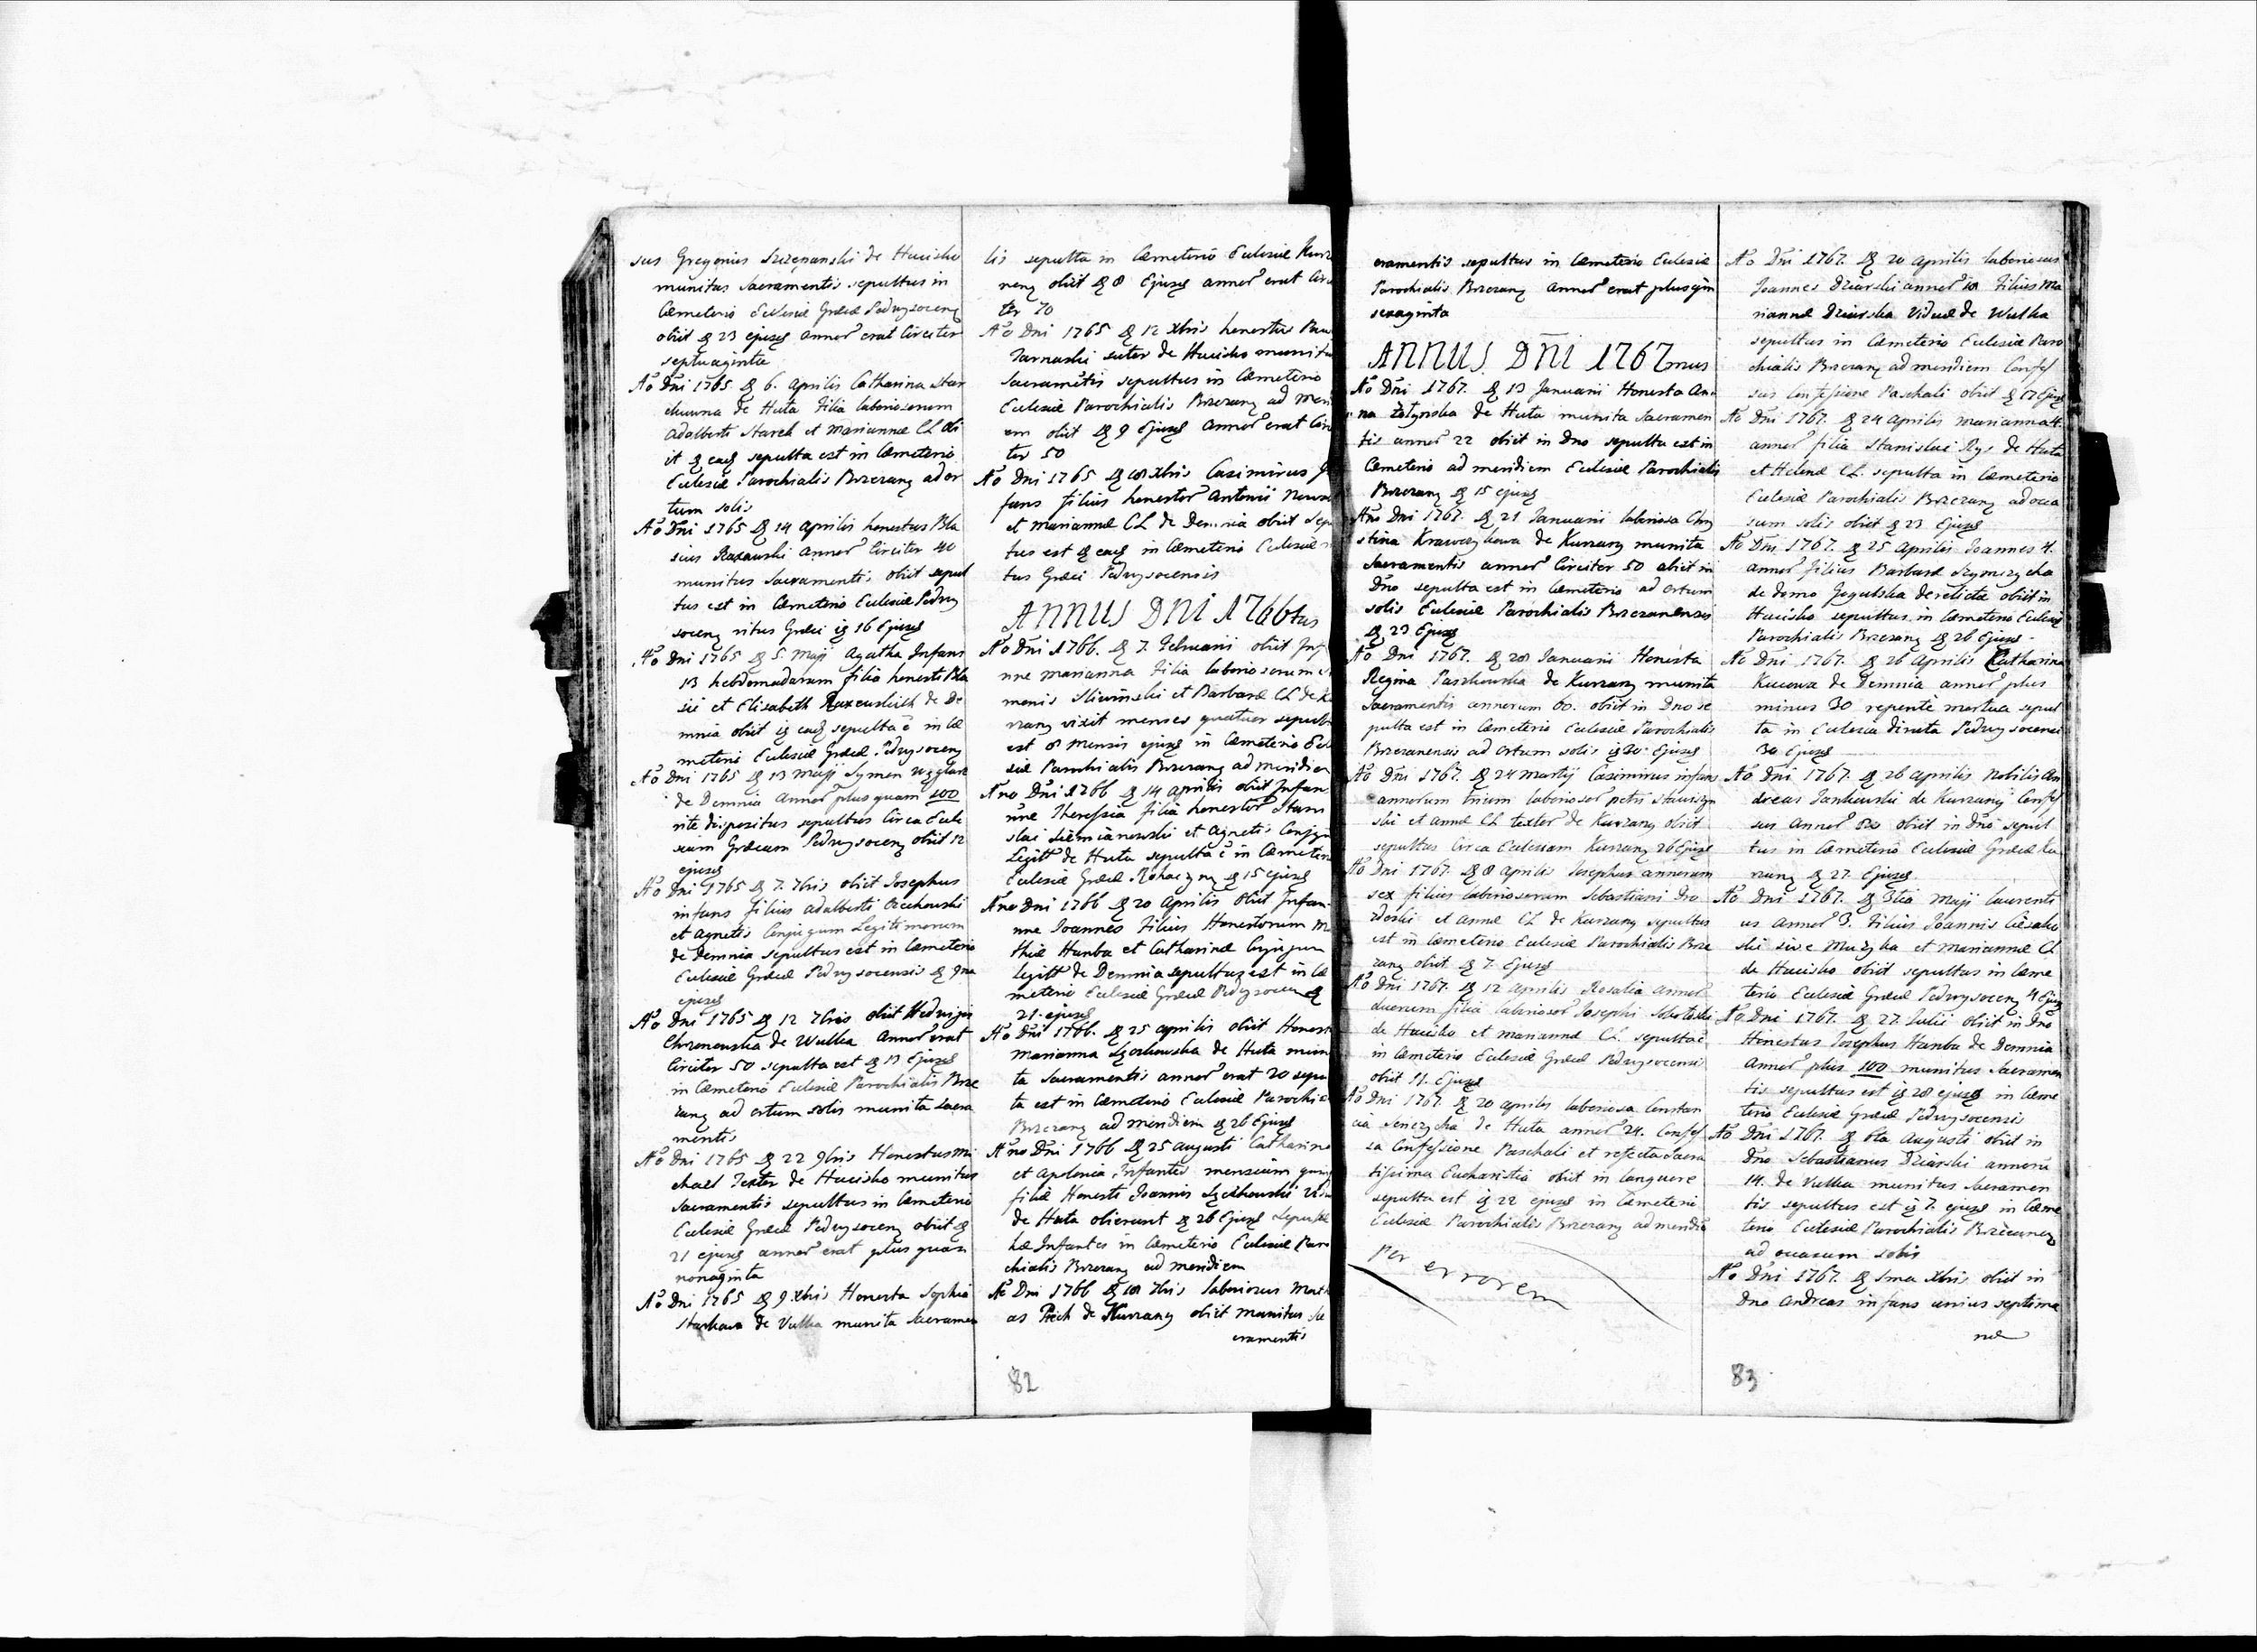 sus Gregorius Szczepanski de Hucisko
munitus Sacramentis sepultus in
Cæmeterio Ecclesiæ Græcæ Podwysocens
obiit 23 ejusd annor erat Circiter
septuaginta
Ao Dni 1765 6. Aprilis Catharina Star
chuwna de Huta Filia laboriosorum
Adalberti Starch et Mariannæ CL obi
it ead sepulta est in Cæmeterio
Ecclesiæ Parochialis Brzezan ad or
tum solis
Ao Dni 1765 14 Aprilis honestus Bla
sius annor Circiter 40
munitus Sacramentis obiit sepul
tus est in Cæmeterio Ecclesiæ Podwy
socens ritus Græci 16 Ejusd
Ao Dni 1765 5. Maji Agatha Infans
13 hebdomadarum filia honesti Bla
sii et Elisabeth de De
mnia obiit ead sepulta ē in Cæ
meterio Ecclesiæ Græcæ Podwysocens
Ao Dni 1765 13 Maji Symon
de Demnia Annor plus quam 100
rite dispositus sepultus Circa Eccle
siam Græcam Podwysocens obiit 12
ejusd
Ao Dni 1765 7. 7bris obiit Josephus
infans filius Adalberti Orzchowski
et Agnetis Conjugum Legitimorum
de Demnia sepultus est in Cæmeterio
Ecclesiæ Græcæ Podwysocensis 9na
ejusd
Ao Dni 1765 12 7bris obiit Hedwigis
Chrzonowska de Wulka Annor erat
Circiter 50 sepulta est 13 Ejusd
in Cæmeterio Ecclesiæ Parochialis Brze
zan ad ortum solis munita Sacra
mentis
Ao Dni 1765 22 9bris Honestus Mi
chael Texter de Hucisko munitus
Sacramentis sepultus in Cæmeterio
Ecclesiæ Græcæ Podwysocens obiit
21 ejusd annor erat plus quam
nonaginta
Ao Dni 1765 9 Xbris Honesta Sophia
de Vulka munita Sacramen
lis sepulta in Cæmeterio Ecclesiæ Kurz
nens obiit 8 Ejusd annor erat Circ
ter 70
Ao Dni 1765 12 Xbris honestus Pau
Tarnaski sutor de Hucisko munitus
Sacramētis sepultus in Cæmeterio
Ecclesiæ Parochialis Brzezan ad meri
em obiit 9 Ejusd Annor erat Circ
ter 50
Ao Dni 1765 18 Xbris Casimirus
fans filius honestor Antonii
et Mariannæ CL de Demnia obiit Sepu
tus est ead in Cæmeterio Ecclesiæ
tus Græci Podwysocensis
ANNUS DNI 1766tus
Ao Dni 1766. 7. Februarii obiit Inf
nne Marianna Filia laboriosorum
monis Sliwinski et Barbaræ CL de K
rzan vixit menses quatuor sepulta
est 8 mensis ejusd in Cæmeterio Eccl
siæ Parochialis Brzezan ad meridiem
Ano Dni 1766 14 Aprilis obiit Infan
nne Theressia filia honestor Stani
slai Siemianowski et Agnetis Conjgu
Legitt de Huta sepulta ē in Cæmeterio
Ecclesiæ Græcæ Rohaczyn 15 ejusd
Ano Dni 1766 20 Aprilis obiit Infan
nne Joannes Filius Honestorum M
thiæ Hanba et Catharinæ Cojugum
legitt de Demnia sepultus est in Cæ
meterio Ecclesiæ Græcæ Podwysocen
21 ejusd
Ao Dni 1766. 25 Aprilis obiit Honesta
Marianna de Huta muni
ta Sacramentis annor erat 20 sepu
ta est in Cæmeterio Ecclesiæ Parochia
Brzezan ad meridiem 26 Ejusd
Ano Dni 1766 25 Augusti Catharina
et Apolonia Infantes mensium
filiæ Honesti Joannis
de Huta obierunt 26 Ejusd Sepultæ
hæ Infantes in Cæmeterio Ecclesiæ Paro
chialis Brzezan ad meridiem
Ao Dni 1766 18 7bris laboriosus Math
as Pich de Kurzany obiit munitus Sa
cramentis
82
cramentis sepultus in Cæmeterio Ecclesiæ
Parochialis Brzezan Annor erat plus qm
sexaginta
ANNUS DNI 1767mus
Ao Dni 1767. 13 Januarii Honesta An
na Zołynska de Huta munita Sacramen
tis annor 22 obiit in Dno sepulta est in
Cæmeterio ad meridiem Ecclesiæ Parochialis
Brzezan 15 ejusd
Ano Dni 1767. 21 Januarii laboriosa Chry
stina Krawczykowa de Kurzany munita
Sacramentis annor Circiter 50 obiit in
Dno sepulta est in Cæmeterio ad ortum
solis Ecclesiæ Parochialis Brzezanensis
23 Ejusd
Ao Dni 1767. 28 Januarii Honesta
Regina Paszkowska de Kurzany munita
Sacramentis annorum 60. obiit in Dno se
pulta est in Cæmeterio Ecclesiæ Parochialis
Brzezanensis ad ortum solis 30 Ejusd
Ao Dni 1767. 24 Martij Casimirus infans
annorum trium laboriosor Petri
ski et Annæ CL texter de Kurzany obiit
sepultus Circa Ecclesiam Kurzany 26 Ejusd
Ao Dni 1767. 8 Aprilis Josephus annorum
sex filius laboriosorum Sebastiani Dro
zdoski et Annæ CL de Kurzany sepultus
est in Cæmeterio Ecclesiæ Parochialis Brze
zany obiit 7. Ejusd
Ao Dni 1767. 12 Aprilis Rosalia Annor
duorum filia laboriosor Josephi
de Hucisko et Mariannæ CL. sepulta ē
in Cæmeterio Ecclesiæ Græcæ Podwysocensis
obiit 11. Ejusd
Ao Dni 1767. 20 Aprilis laboriosa Constan
cia de Huta annor 24. Confes
sa Confessione Paschali et refecta Sacra
tissima Eucharistia obiit in languore
sepulta est 22 ejusd in Cæmeterio
Ecclesiæ Parochialis Brzezany ad meridie
Per errorem
Ao Dni 1767. 20 Aprilis laboriosus
Joannes Dziarski annor 18 Filius Ma
riannæ Dziarska Viduæ de Wulka
sepultus in Cæmeterio Ecclesiæ Paro
chialis Brzezany ad meridiem Confes
sus Confessione Paschali obiit 17 Ejusd
Ao Dni 1767. 24 Aprilis Marianna 4.
annor filia Stanislai Rys de Huta
et Helenæ CL. sepulta in Cæmeterio
Ecclesiæ Parochialis Brzezany ad occa
sum solis obiit 23 Ejusd
Ao Dni 1767. 25 Aprilis Joannes 4.
annor filius Barbaræ
de domo derelicta obiit in
Hucisko sepultus in Cæmeterio Ecclesiæ
Parochialis Brzezany 26 Ejusd
Ao Dni 1767. 26 Aprilis Catharina
Kucowa de Demnia annor plus
minus 30 repente mortua sepul
ta in Ecclesia diruta Podwysocensi
30 Ejusd
Ao Dni 1767. 26 Aprilis Nobilis An
dreas Jankowski de Kurzany Confes
sus annor obiit in Dno sepul
tus in Cæmeterio Ecclesiæ Græcæ Ku
rzany 27 Ejusd
Ao Dni 1767. 3tia Maji Laurenti
us annor 3. Filius Joannis
ski sive Muzyka et Mariannæ CL
de Hucisko obiit sepultus in Cæme
terio Ecclesiæ Græcæ Podwysocens 4 Ejusd
Ao Dni 1767. 27. Julii obiit in Dno
Honestus Josephus Hanba de Demnia
Annor plus 100 munitus Sacramen
tis sepultus est 28 ejusd in Cæme
terio Ecclesiæ Græcæ Podwysocensis
Ao Dni 1767. 6ta Augusti obiit in
Dno Sebastianus Dziarski annorū
14. de Vulka munitus Sacramen
tis sepultus est 7. ejusd in Cæme
terio Ecclesiæ Parochialis Brzezanen
ad occasum solis
Ao Dni 1767. 1ma Xbris obiit in
Dno Andreas infans unius septima
næ
83